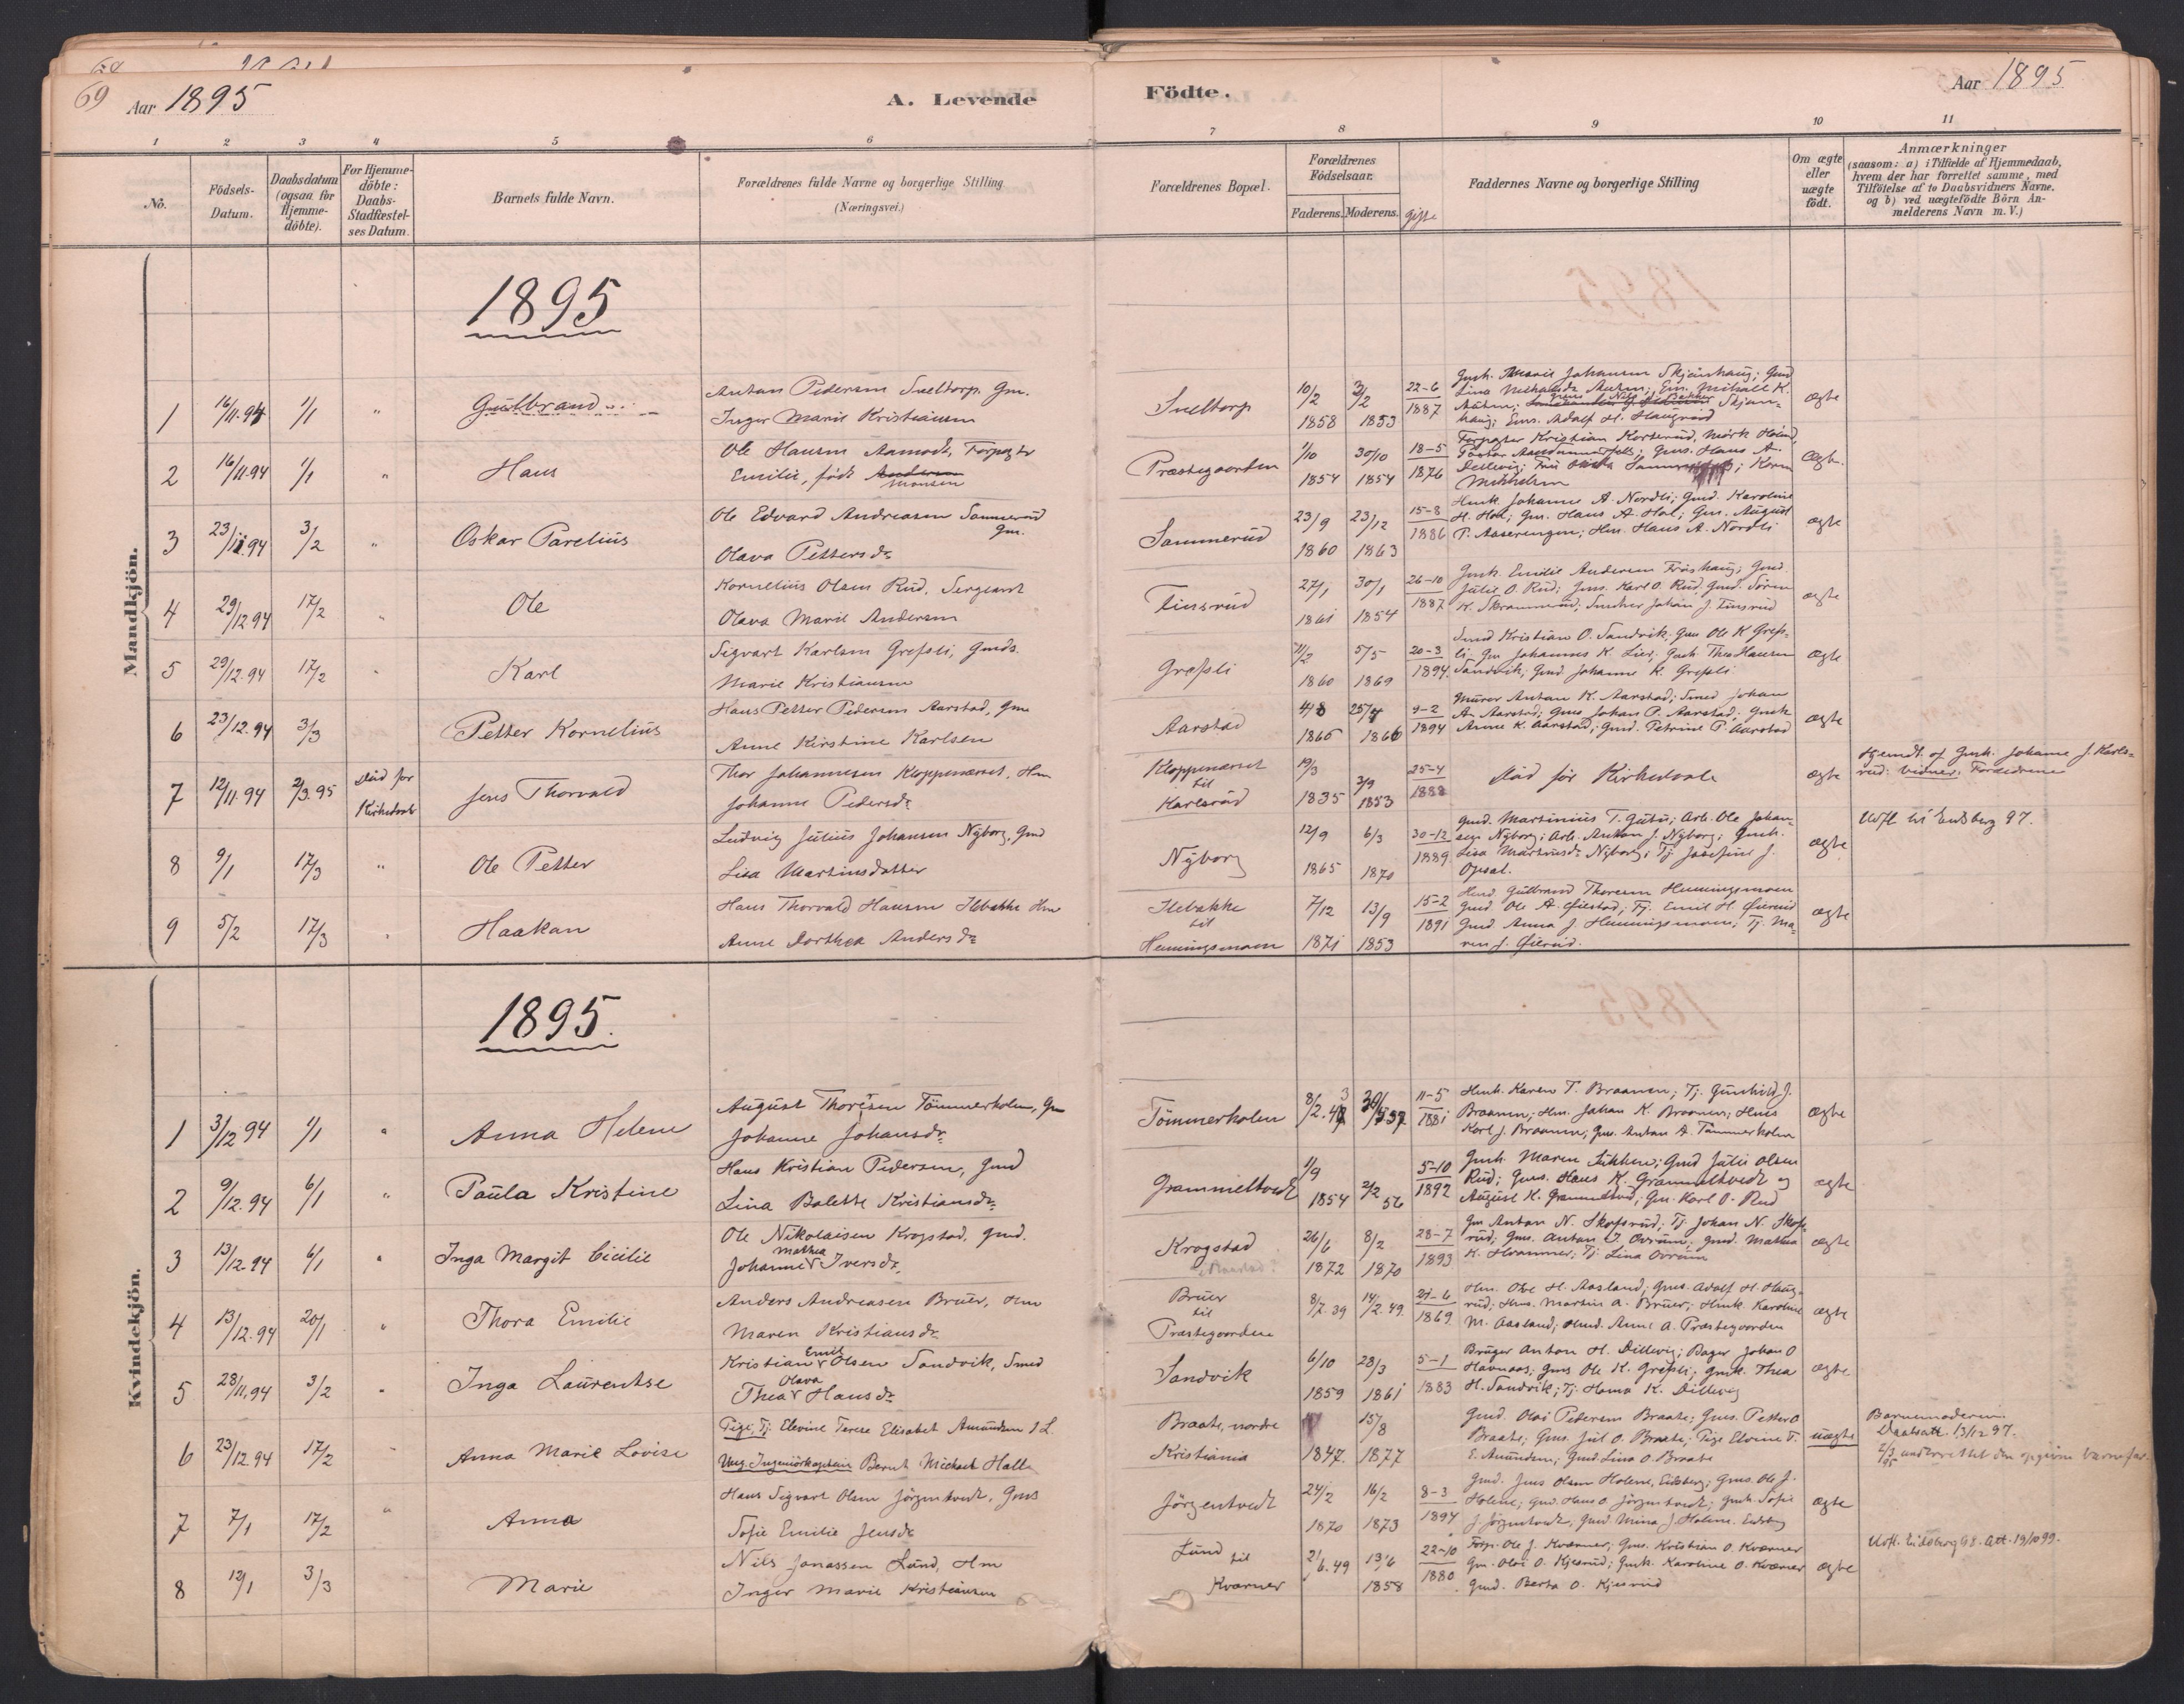 69 Aar 1895 A. Levende Födte. Aar 1895
1 2 3 4 5 6 7 8 9 10 11
No.
Födsels-Datum.
Daabsdatum (ogsaa for Hjemme-döbte).
For Hjemme-döbte: Daabs-Stadfæstel-ses Datum.
Barnets fulde Navn.
Forældrenes fulde Navne og borgerlige Stilling (Næringsvei.)
Forældrenes Bopæl.
Forældrenes Födselsaar.
Faderens. Moderens. gifte
Faddernes Navne og borgerlige Stilling
Om ægte eller uægte födt.
Anmærkninger
(saasom: a) i Tilfælde af Hjemmedaab,
hvem der har forrettet samme, med
Tilföielse af to Daabsvidners Navne,
og b) ved uægtefödte Börn An-
melderens Navn m. V.)
Mandkjön.
1895
1 16/11.94 1/1 " Gulbrand
Anton Pedersen Sneltorp. Gm.
Inger Marie Kristiansen
Sneltorp
10/2 1858 3/2 1853 22-6 1887
ægte
2 16/11.94 1/1 " Hans
Ole Hansen Aamodt, Forpagter
Emilie, født Andersen Monsen
Præstegaarden
1/10 1854 30/10 1854 18-5 1876
Ægte
3 23/11.94 3/2 " Oskar Parelius
Ole Edvard Andreasen Sammerud Gm.
Olava Pettersdr
Sammerud
23/9 1860 23/12 1863 15-8 1886
Hmk. Johanne A. Nordli; Gmd. Karoline
H. Hol; Gm. Hans A. Hol; Gm. August
P. Aaserengen; Hm. Hans A. Nordli
ægte
4 29/12.94 17/2 " Ole
Kornelius Olsen Rud, Sergeant
Olava Marie Andersen
Finsrud
27/1 1861 30/1 1854 26-10 1887
Gmk. Emilie Andersen Fröshaug; Gmd.
Julie O. Rud; Gms. Karl O. Rud, Gmd. Sören
K. Skrammerud; Snedker Johan J. Finsrud
ægte
5 29/12.94 17/2 " Karl
Sigvart Karlsen Grefsli, Gmds.
Marie Kristiansen
Grefsli
1860 5/5 1869 20-3 1894
Smed Kristian O. Sandvik; Gms Ole K Grefs-
li; Gm Johannes K. Lier; Gmk Thea Hansen
Sandvik; Gmd Johanne K. Grefsli
ægte
6 23/12.94 3/3 Petter Kornelius
Hans Petter Pedersen Aarstad, Gm
Anne Kirstine Karlsen
Aarstad
4/8 1865 25/4 1866 9-2 1894
Murer Anton K. Aarstad; Smed Johan
A. Aarstad; Gms Johan P. Aarstad; Gmk
Anne K. Aarstad; Gmd. Petrine P. Aarstad
ægte
7 12/11.94 2/3.95 död før Kirkedaab Jens Thorvald
Thor Johannesen Kloppenæset, Hm
Johanne Pedersdr
Kloppenæset til Karlsrud
19/3 1835 3/9 1853 25-4 1888
död før Kirkedaab
ægte
Hjemdt. af Gmk. Johanne J. Karls-
rud: Vidner: Forældrene
8 9/1 17/3 " Ole Petter
Ludvig Julius Johansen Nyborg, Gmd
Lisa Martinsdatter
Nyborg
12/9 1865 6/3 1870 30-12 1889
Gmd. Martinius T. Gutu; Arb. Ole Johan-
sen Nyborg; Arb. Anton J. Nyborg; Gmk.
Lisa Martinsdr Nyborg; Tj. Josefine J.
Opsal.
ægte
Utfl. til Eidsberg 97.
9 5/2 17/3 " Haakan
Hans Thorvald Hansen Ilebakke Hm
Anne Dorthea Andersdr
Ilebakke til Hemingsmoen
7/12 1871 13/9 1853 15-2 1891
Hmd Gulbrand Thoresen Hemingsmoen
Gmd. Ole A. Øiestad; Tj. Emil H. Øierud
Gmd Anna J. Hemmingsmoen; Tj. Ma-
ren J. Øierud.
ægte
Kvindekjön.
1895.
1 3/12 94 1/1 " Anna Helene
August Thoresen Tömmerholm, Gm
Johanne Johansdr.
Tömmerholen
11-5 1881
Hmk. Karen T. Braanen; Tj. Gunhild J.
Braanen; Hm. Johan K. Braanen; Hms
Karl J. Braanen; Gms. Anton A. Tömmerholm
ægte
2 9/12.94 6/1 " Paula Kristine
Hans Kristian Pedersen, Gmd
Lina Bolette Kristiansdr.
Grammeltvedt
1/9 1854 2/2 56 5-10 1892
Gmk. Maren Sikken; Gmd Julie Olsen
Rud; Gms. Hans K. Grammeltvedt og
August K. Grammeltvedt; Gm. Karl O. Rud
ægte
3 13/12.94 6/1 " Inga Margit Cicilie
Ole Nikolaisen Krogstad, Gmd.
Johanne Mathea Iversdr.
Krogstad
26/6 1872 8/2 1870 28-7 1893
Gm Anton N. Skofsrud; Tj. Johan N. Skofs-
rud; Gms. Anton I. Ovrum, Gmd. Mathea
K. Hrammer; Tj. Lina Ovrum
ægte
4 13/12.94 20/1 " Thora Emilie
Anders Andreasen Bruer, Hm
Maren Kristiansdr.
Bruer til Præstegaarden
8/7.39 14/2.49 21-6 1869
Hm. Ole H. Aasland; Gms. Adolf H. Haug-
rud; Hms. Martin A. Bruer; Hmk. Karoline
M. Aasland; Hmd. Anne A. Præstegaarden
ægte
5 28/11.94 3/2 " Inga Laurentse
Kristian Emil Olsen Sandvik, Smed
Thea Olava Hansdr
Sandvik
6/10 1859 28/3 1861 5-1 1883
Bruger Anton H. Dillevig; Bager Johan O
Havnaas; Gms Ole K. Grefsli; Gmk. Thea
H. Sandvik; Tj. Hanna K. Dillevig
ægte
6 23/12.94 17/2 " Anna Marie Lovise
Pige, Tj. Elevine Terese Elisabet Amundsen 1 L.
Ung. Ingeniörkaptein Bernt Michael Halle
Braate, nordre
Kristiania
1847. 15/8 1877
Gmd. Olai Pedersen Braate; Gms. Petter O
Braate; Gms. Jul O. Braate; Pige Elvine T.
E. Amundsen; Gmd Lina O. Braate
uægte
Barnemoderen.
Daabsatt. 13/12 97.
2/3 95 underrettet den opgivne barnefar
7 7/1 17/2 " Anna
Hans Sigvart Olsen Jörgentvedt, Gms
Sofie Emilie Jensdr
Jörgentvedt
24/2 1870 16/2 1873 8-3 1894
Gmd. Jens Olsen Holene, Eidsberg; Gms. Ole J.
Holene; Gmd. Hans O. Jörgentvedt; Gmk. Sofie
J. Jörgentvedt, Gmd. Mina J Holene. Eidsberg
ægte
8 12/1 3/3 Marie
Nils Jonassen Lund, Hm
Inger Marie Kristiansen
Lund til Kværner
21/6.49 13/6 1858 22-10 1880
Forp. Ole J. Kværner; Gms. Kristian O. Kværner
Gm. Olai O. Kjesrud; Gmk. Karoline O. Kværner
Gmd. Berta O. Kjesrud
ægte
Utfl. Eidsberg 98. Att. 19/10 99.